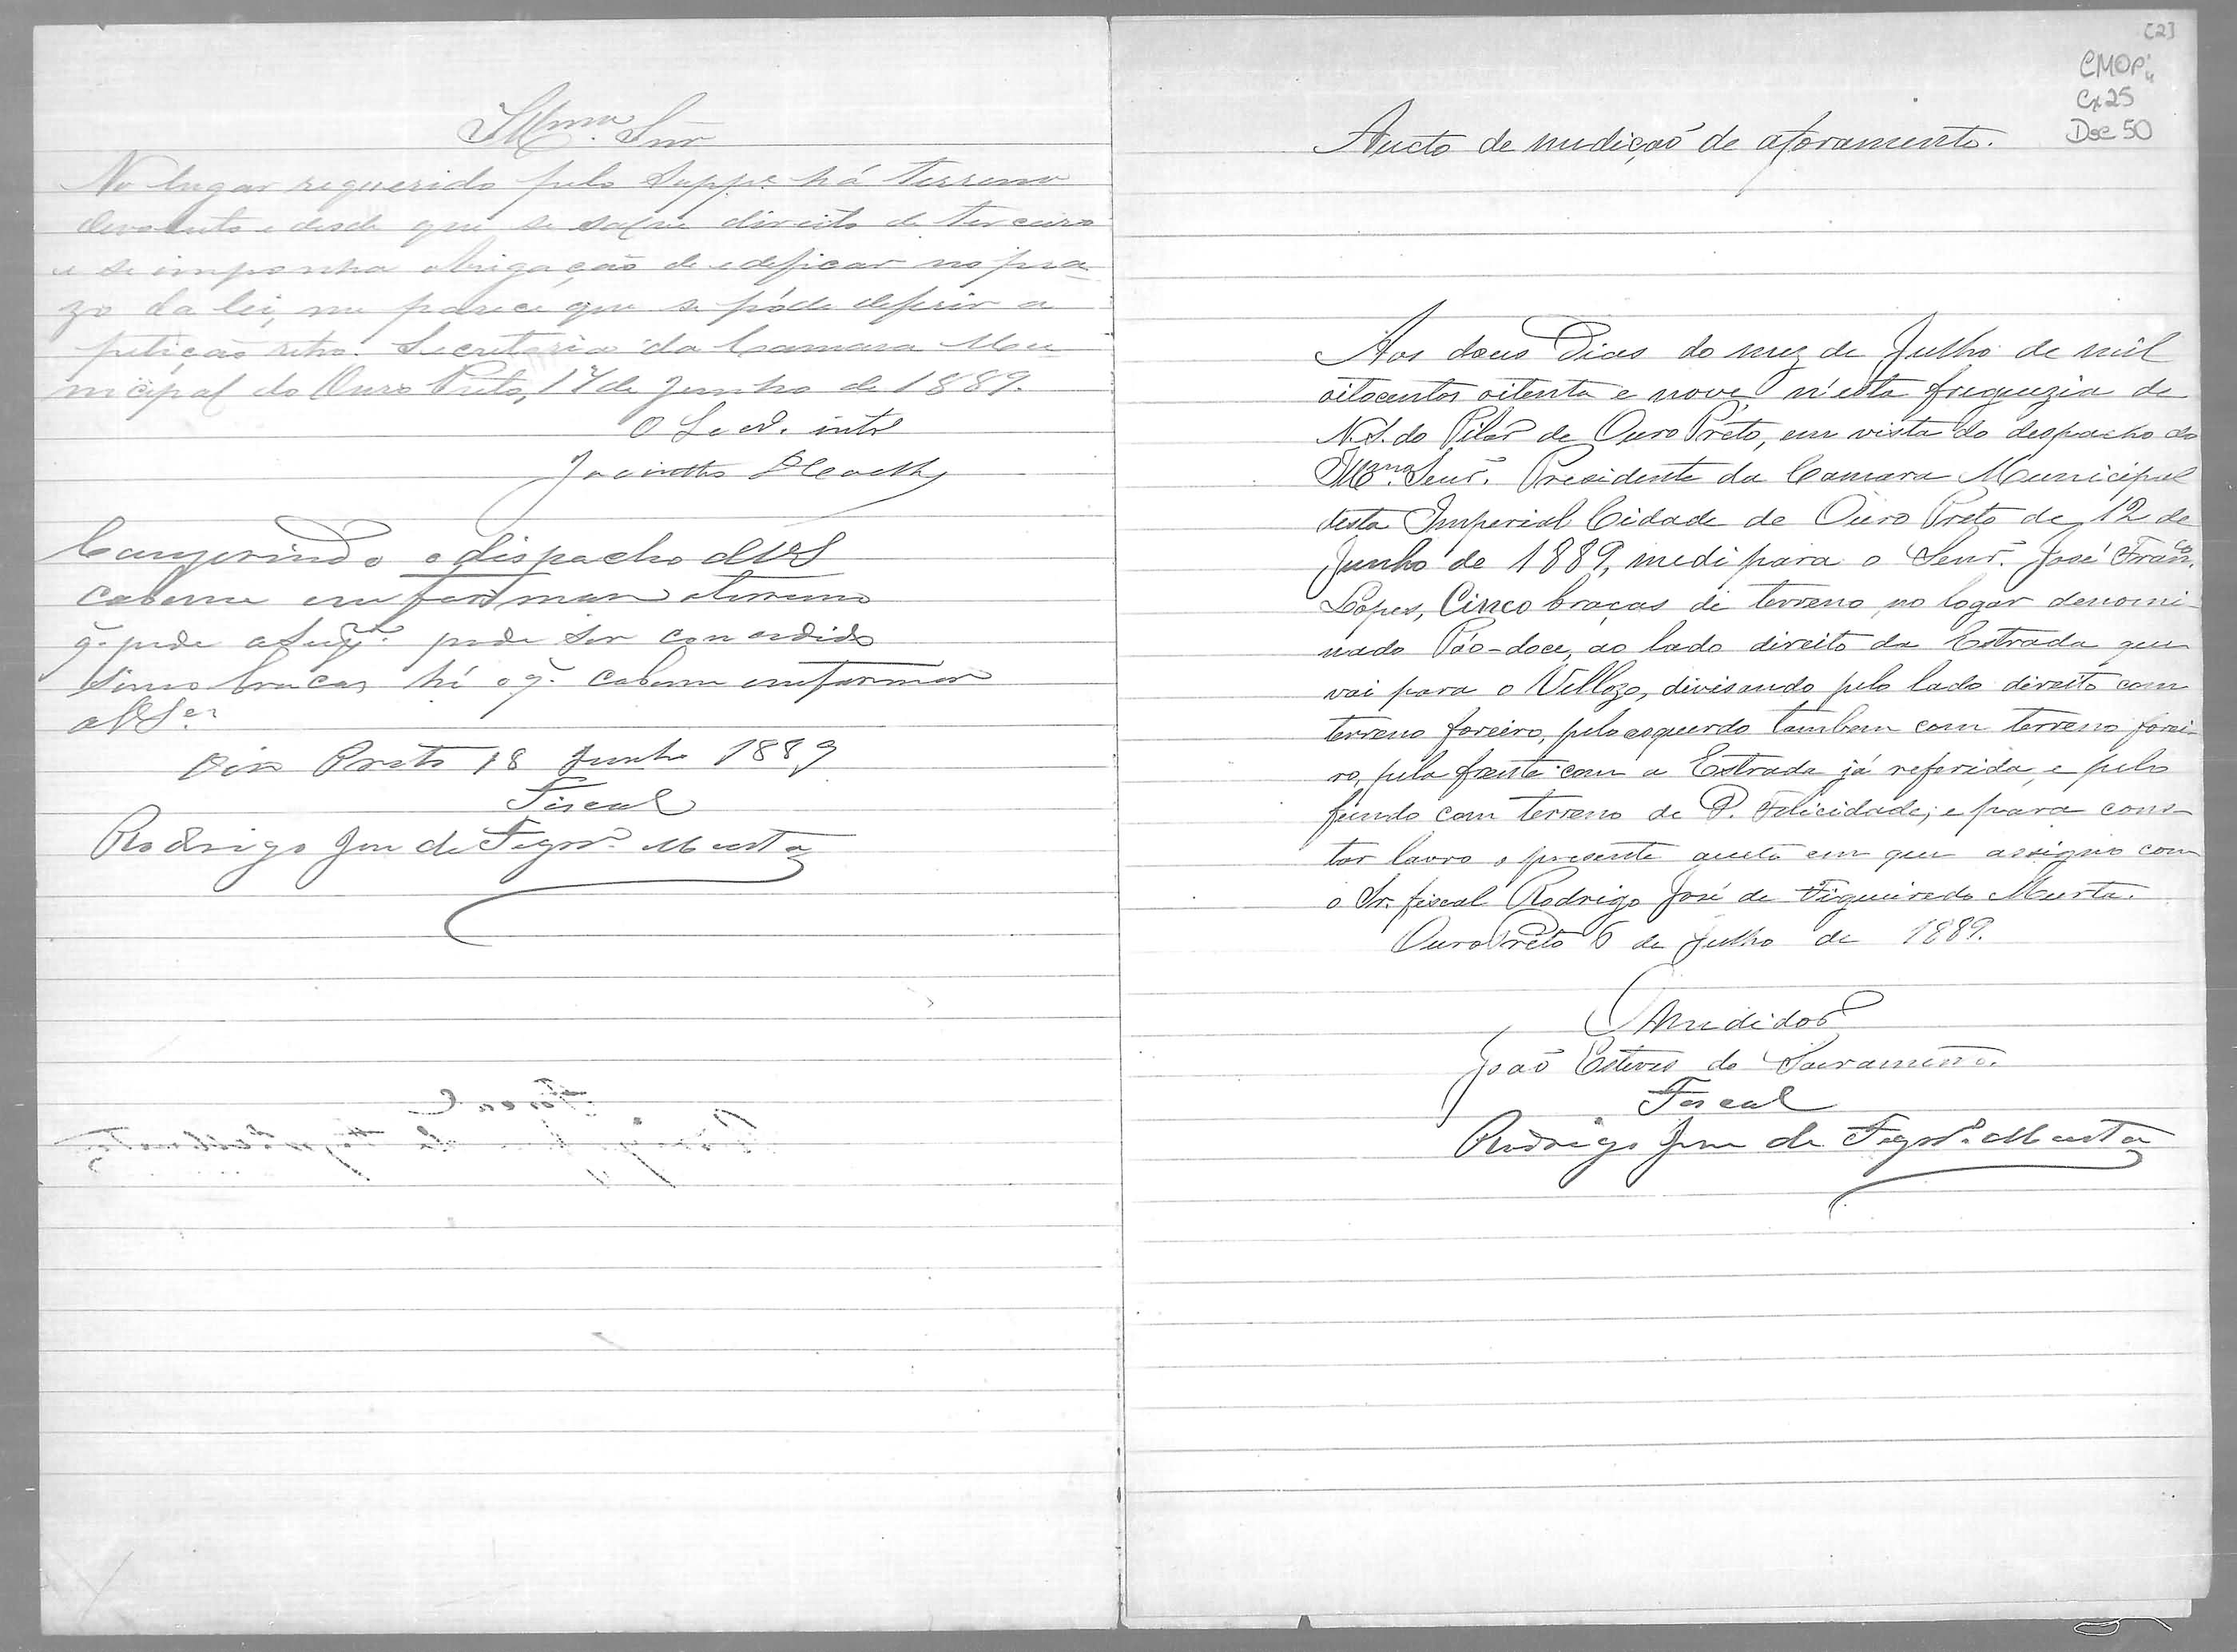 Illmo. Snr
No lugar requerido pelo Suppe. há terreno
devoluto e desde que se salve direito de terceiro
e se imponha obrigação de edeficar no pra
zo da lei, me parece que se póde deferir a
petição retro. Secretaria da Camara Mu
nicipal do Ouro Preto, 17 de Junho de 1889.
O Secr. intr
Jacintho
o dispacho de VS
cabeme emformar o terreno
q. pede a pode ser concedido
Sinco bracas hé o q. cabeme emformar
a VSa.
Oiro Preto 18 Junho 1889
Fiscal
Rodrigo Jose de Figrdo. Murta
[2]
CMOP
Cx 25
Doc 50
Aucto de medição de aforamento.
Aos dous Dias do mez de Julho de mil
oitocentos oitenta e nove n'esta freguezia de
N. S. do Pilar de Ouro Preto, em vista do despacho do
Illmo. Senr. Presidente da Camara Municipal
desta Imperial Cidade de Ouro Preto de 12 de
Junho de 1889, medi para o Senr. José Franco.
Lopes, Cinco braças de terreno no logar denomi-
nado Páo-doce, ao lado direito da Estrada que
vai para o Vellozo, divisando pelo lado direito com
terreno foreiro, pelo esquerdo tambem com terreno forei-
ro, pela frente com a Estrada já referida, e pelo
fundo com terreno de P. Felicidade; e para cons-
tar lavro o presente aucto em que assigno com
o Sr. fiscal Rodrigo José de Figueiredo Murta.
Ouro Preto 6 de Julho de 1889.
O Medidor
João Esteves do Sacramento.
Fiscal
Rodrigo Jose de Figrdo. Murta